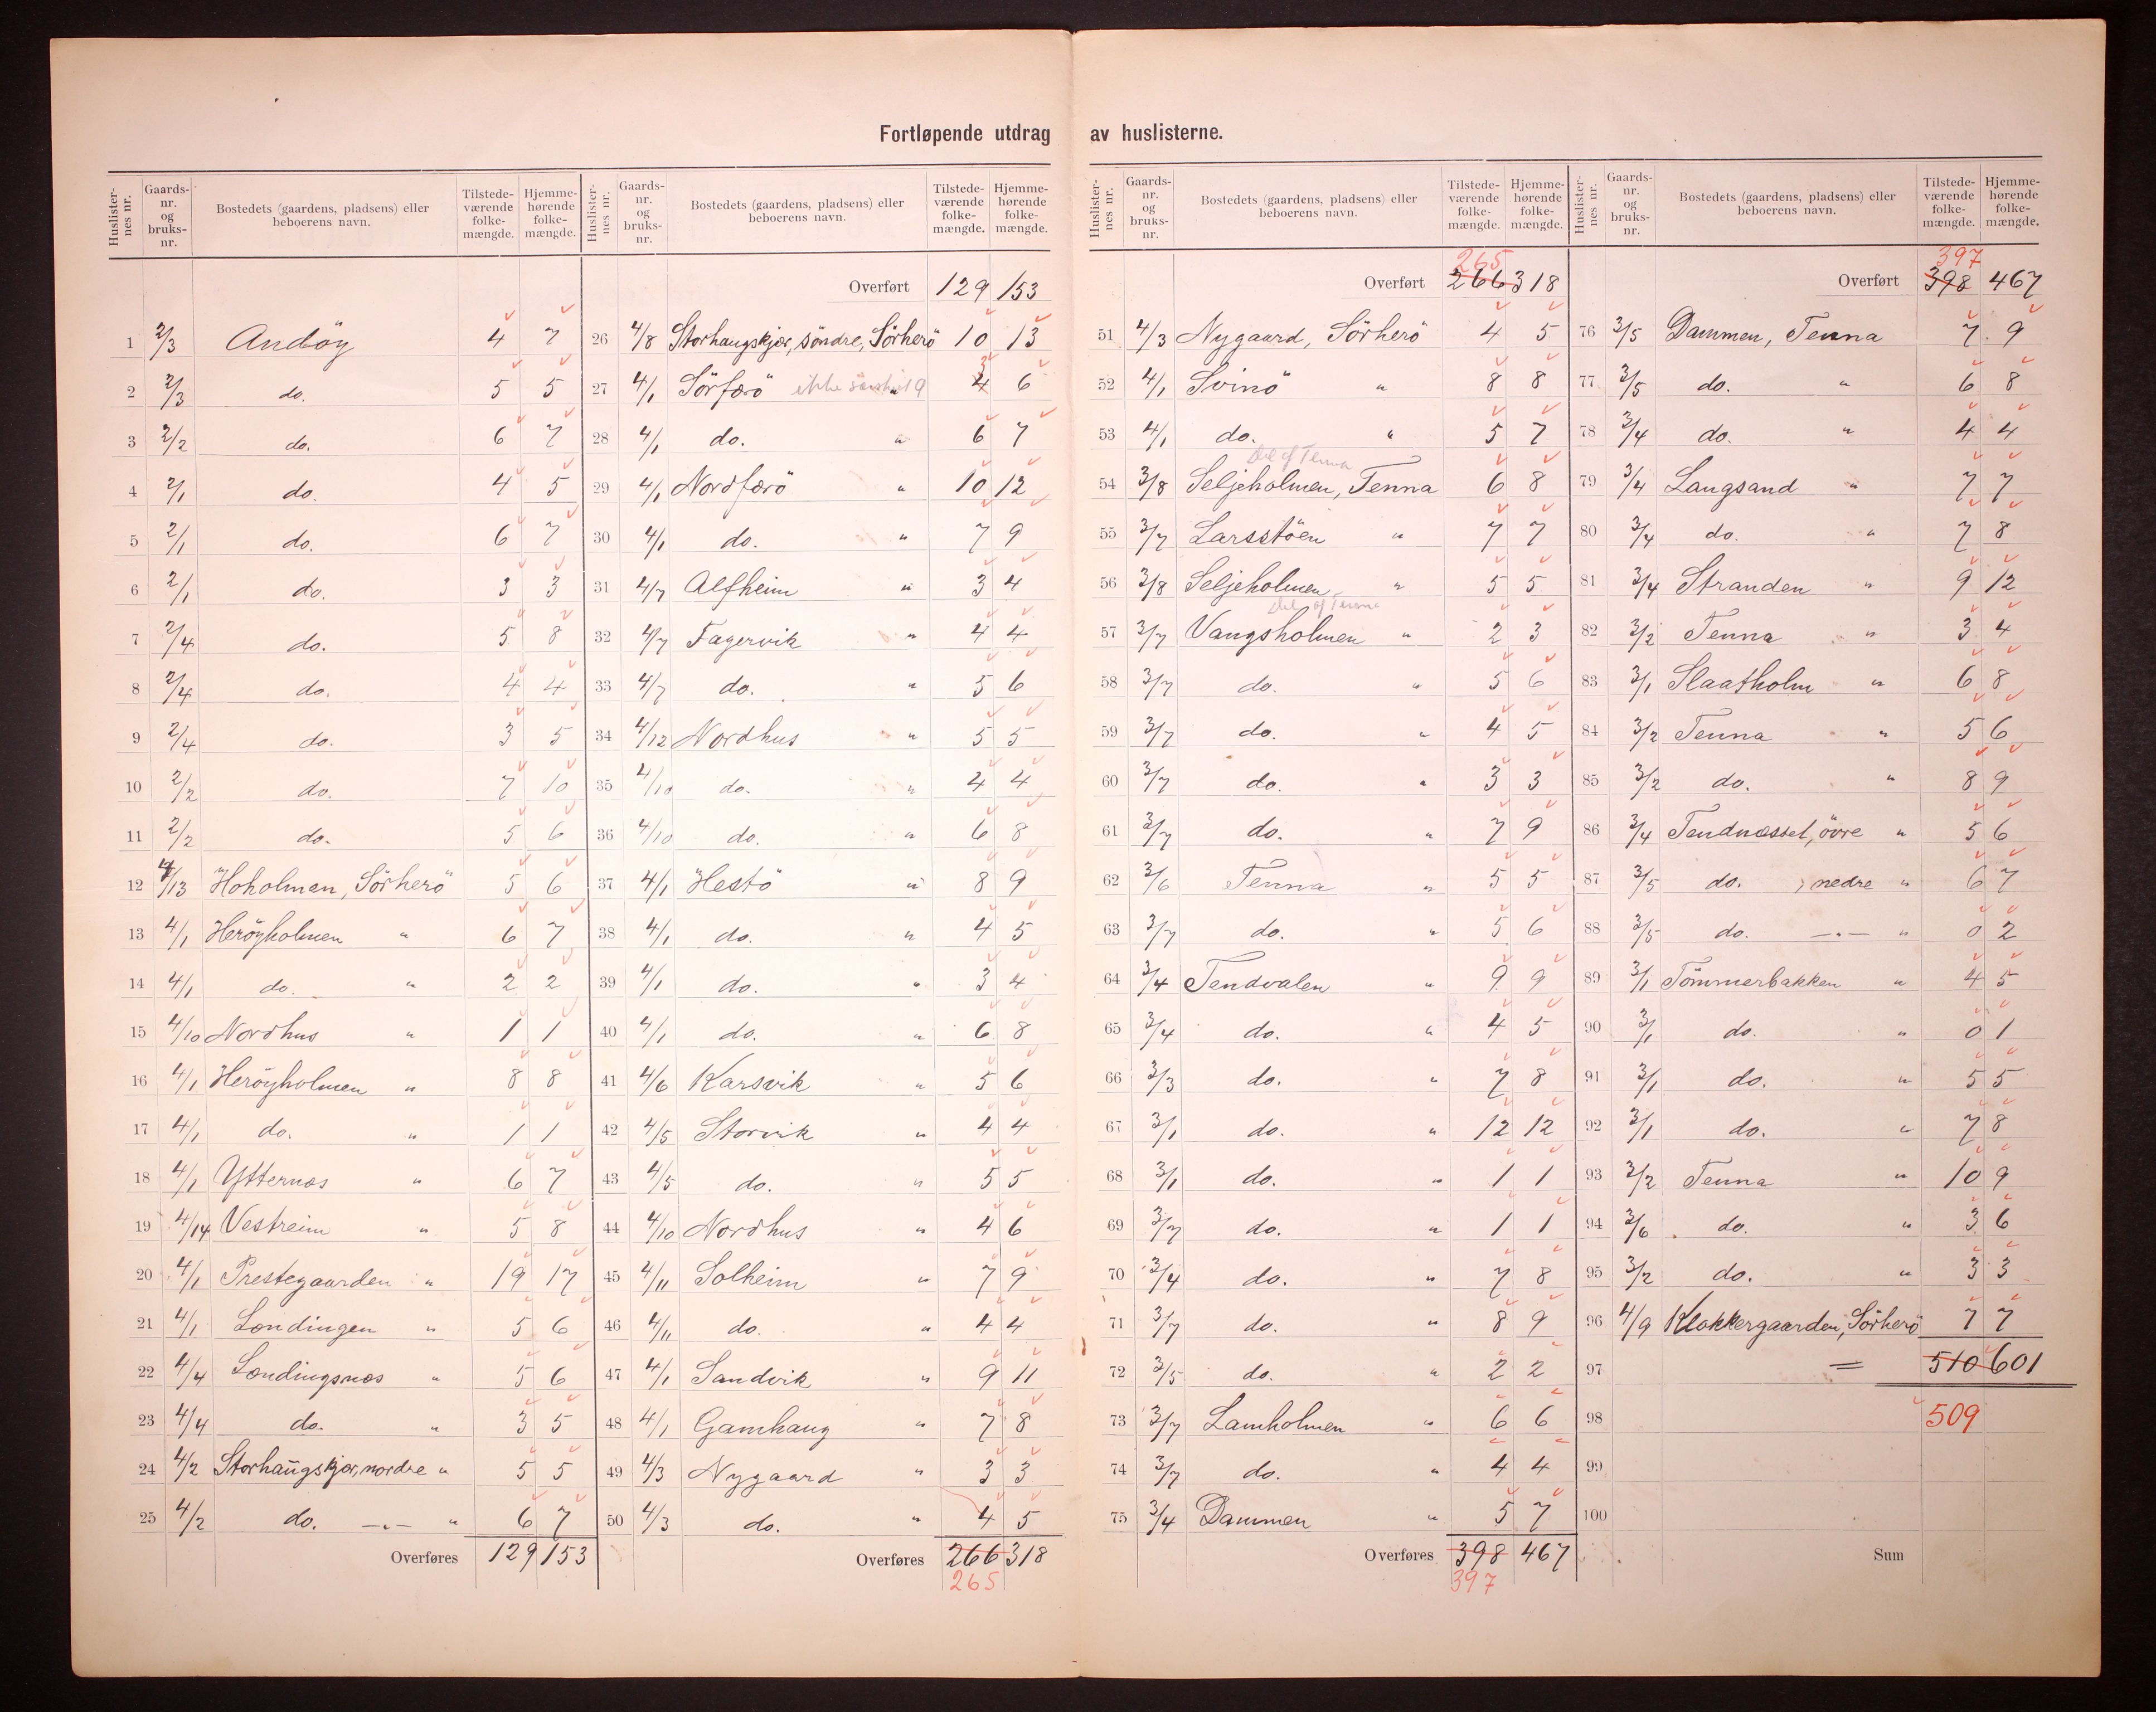 Fortløpende utdrag av huslisterne.
Huslister-nes nr. Gaards-nr. og bruks-nr. Bostedets (gaardens, pladsens) eller beboerens navn. Tilstede-værende folke-mængde. Hjemme-hørende folke-mængde.
1 2/3 Andöy 4 7
2 2/3 do. 5 5
3 2/2 do. 6 7
4 2/1 do. 4 5
5 2/1 do. 6 7
6 2/1 do. 3 3
7 2/4 do. 5 8
8 2/4 do. 4 4
9 2/4 do. 3 5
10 2/2 do. 7 10
11 2/2 do. 5 6
12 4/13 Höholmen, Sörherö 5 6
13 4/1 Heröyholmen " 6 7
14 4/1 do. " 2 2
15 4/10 Nordhus " 1 1
16 4/1 Heröyholmen " 8 8
17 4/1 do. " 1 1
18 4/1 Ytternes " 6 7
19 4/14 Vestreim " 5 8
20 4/1 Prestegaarden " 19 17
21 4/1 Lendingen " 5 6
22 4/4 Lendingsnes " 5 6
23 4/4 do. " 3 5
24 4/2 Storhaugskjær, nordre " 5 5
25 4/2 do. —"— " 6 7
Overføres 129 153
Huslister-nes nr. Gaards-nr. og bruks-nr. Bostedets (gaardens, pladsens) eller beboerens navn. Tilstede-værende folke-mængde. Hjemme-hørende folke-mængde.
Overført 129 153
26 4/8 Storhaugskjær, söndre, Sörherö 10 13
27 4/1 Sörfærö ikke " 4 3 6
28 4/1 do. " 6 7
29 4/1 Nordfærö " 10 12
30 4/1 do. " 7 9
31 4/7 Alfheim " 3 4
32 4/7 Fagervik " 4 4
33 4/7 do. " 5 6
34 4/12 Nordhus " 5 5
35 4/10 do. " 4 4
36 4/10 do. " 6 8
37 4/1 Hestö " 8 9
38 4/1 do. " 4 5
39 4/1 do. " 3 4
40 4/1 do. " 6 8
41 4/6 Karsvik " 5 6
42 4/5 Storvik " 4 4
43 4/5 do. " 5 5
44 4/10 Nordhus " 4 6
45 4/11 Solheim " 7 9
46 4/11 do. " 4 4
47 4/1 Sandvik " 9 11
48 4/1 Gamhaug " 7 8
49 4/3 Nygaard " 3 3
50 4/3 do. " 4 5
Overføres 266 318
265
Huslister-nes nr. Gaards-nr. og bruks-nr. Bostedets (gaardens, pladsens) eller beboerens navn. Tilstede-værende folke-mængde. Hjemme-hørende folke-mængde.
265
Overført 266 318
51 4/3 Nygaard, Sörherö 4 5
52 4/1 Svinö " 8 8
53 4/1 do. " 5 7
Del af Tenna
54 3/8 Seljeholmen, Tenna 6 8
55 3/7 Larsstöen " 7 7
56 3/8 Seljeholmen " 5 5
Del af Tenna
57 3/7 Vangsholmen " 2 3
58 3/7 do. " 5 6
59 3/7 do. " 4 5
60 3/7 do. " 3 3
61 3/7 do. " 7 9
62 3/6 Tenna " 5 5
63 3/7 do. " 5 6
64 3/4 Tendvalen " 9 9
65 3/4 do. " 4 5
66 3/3 do. " 7 8
67 3/1 do. " 12 12
68 3/1 do. " 1 1
69 3/7 do. " 1 1
70 3/4 do. " 7 8
71 3/7 do. " 8 9
72 3/5 do. " 2 2
73 3/7 Lamholmen " 6 6
74 3/7 do. " 4 4
75 3/4 Dammen " 5 7
Overføres 398 467
397
Huslister-nes nr. Gaards-nr. og bruks-nr. Bostedets (gaardens, pladsens) eller beboerens navn. Tilstede-værende folke-mængde. Hjemme-hørende folke-mængde.
397
Overført 398 467
76 3/5 Dammen, Tenna 7 9
77 3/5 do. " 6 8
78 3/4 do. " 4 4
79 3/4 Langsand " 7 7
80 3/4 do. " 7 8
81 3/4 Stranden " 9 12
82 3/2 Tenna " 3 4
83 3/1 Slaatholm " 6 8
84 3/2 Tenna " 5 6
85 3/2 do. " 8 9
86 3/4 Tendnesset, övre " 5 6
87 3/5 do. , nedre " 6 7
88 3/5 do. —"— " 0 2
89 3/1 Tömmerbakken " 4 5
90 3/1 do. " 0 1
91 3/1 do. " 5 5
92 3/1 do. " 7 8
93 3/2 Tenna " 10 9
94 3/6 do. " 3 6
95 3/2 do. " 3 3
96 4/9 Klokkergaarden, Sörherö 7 7
97 = 510 601
98 509
99
100
Sum